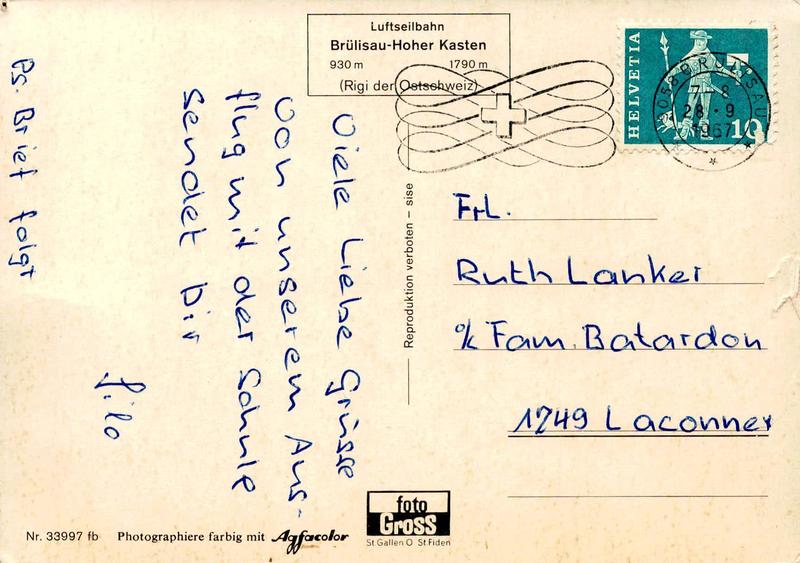 Luftseilbahn
Brülisau-Hoher Kasten
930 m 1790 m
(Rigi der Ostschweiz)
HELVETIA
10
9058 BRÜLISAU
28.9
1967
Viele Liebe Grüsse
von unserem Aus-
flug mit der Schule
sendet Dir
Silo
Ps. Brief folgt
Reproduktion verboten – sise
Frl.
Ruth Lanker
c/o Fam. Batardon
1249 Laconnex
Nr. 33997 fb Photographiere farbig mit Agfacolor
foto
Gross
St Gallen O St Fiden